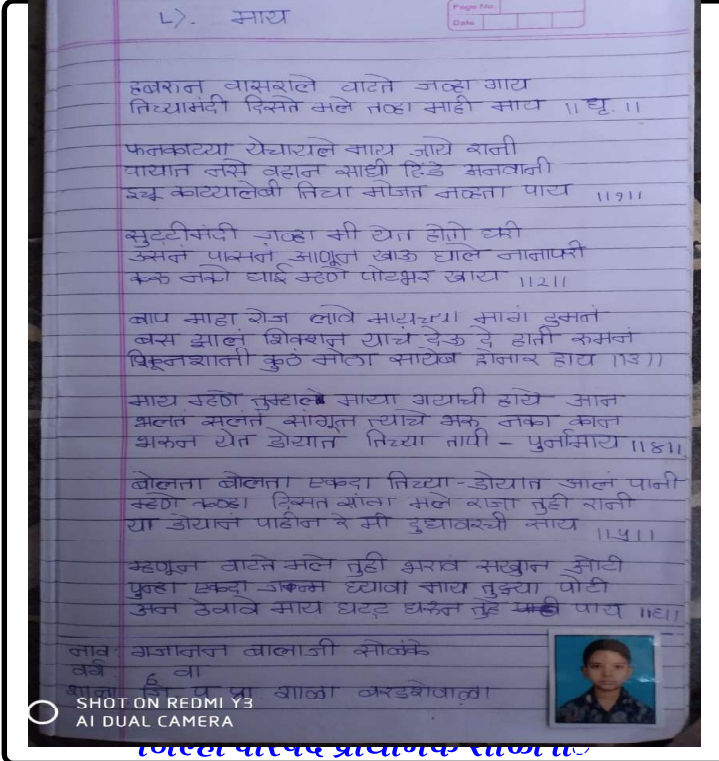 L). माय
Page No.
Date
हबरान वासराले चाटते जव्हा गाय
तिच्यामंदी दिसते मले तव्हा माही माय ॥ धृ. ॥
फनकाट्या येचायले माय जाये रानी
पायात नसे वहान साधी हिंडे अनवानी
इचू काट्यालेबी तिचा मोजत नव्हता पाय ॥१॥
सुट्टीमंदी जव्हा मी येत होतो घरी
उसनं पासनं आणून खाऊ घाले नानापरी
करू नको घाई म्हणे पोटभर खाय ॥२॥
बाप माहा रोज लावे मायच्या मागं टुमनं
बस झालं शिक्शन याचं देऊ दे हाती रुमनं
शिकूनशानी कुठं मोठा सायेब होनार हाय ॥३॥
माय म्हणे तुम्हाले माया गयाची हाये आन
भलतं सलतं सांगून त्याचे भरू नका कान
भरुन येत डोयात तिच्या तापी - पुर्नामाय ॥४॥
बोलता बोलता एकदा तिच्या डोयात आलं पानी
म्हणे कव्हा दिसत सांवा मले राजा तुही रानी
या डोयानं पाहीन रे मी दुधावरची साय ॥५॥
म्हणून वाटते मले तुही भरावं सखुान ओटी
पुन्हा एकदा जन्म घ्यावा माय तुझ्या पोटी
अन ठेवावे माय घट्ट धरून तुहे पाय ॥६॥
नाव: गजानन बालाजी सोळंके
वर्ग 6 वा
शाळा जि प प्रा शाळा वरडशेवाळा
SHOT ON REDMI Y3
AI DUAL CAMERA
जिल्हा परिषद प्राथमिक शाळा